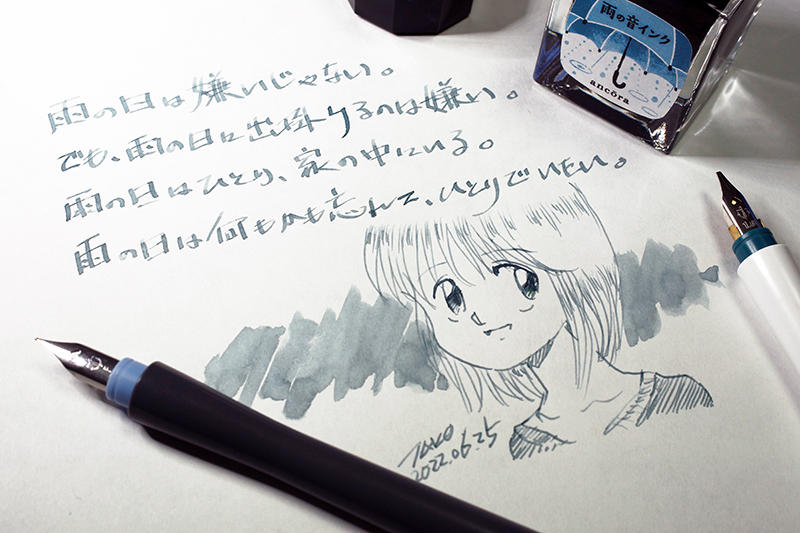 雨の音インク
ancora
雨の日は嫌いじゃない。
でも、雨の日に出掛けるのは嫌い。
雨の日はひとり、家の中にいる。
雨の日は何もかも忘れて、ひとりでいたい。
2022.06.25